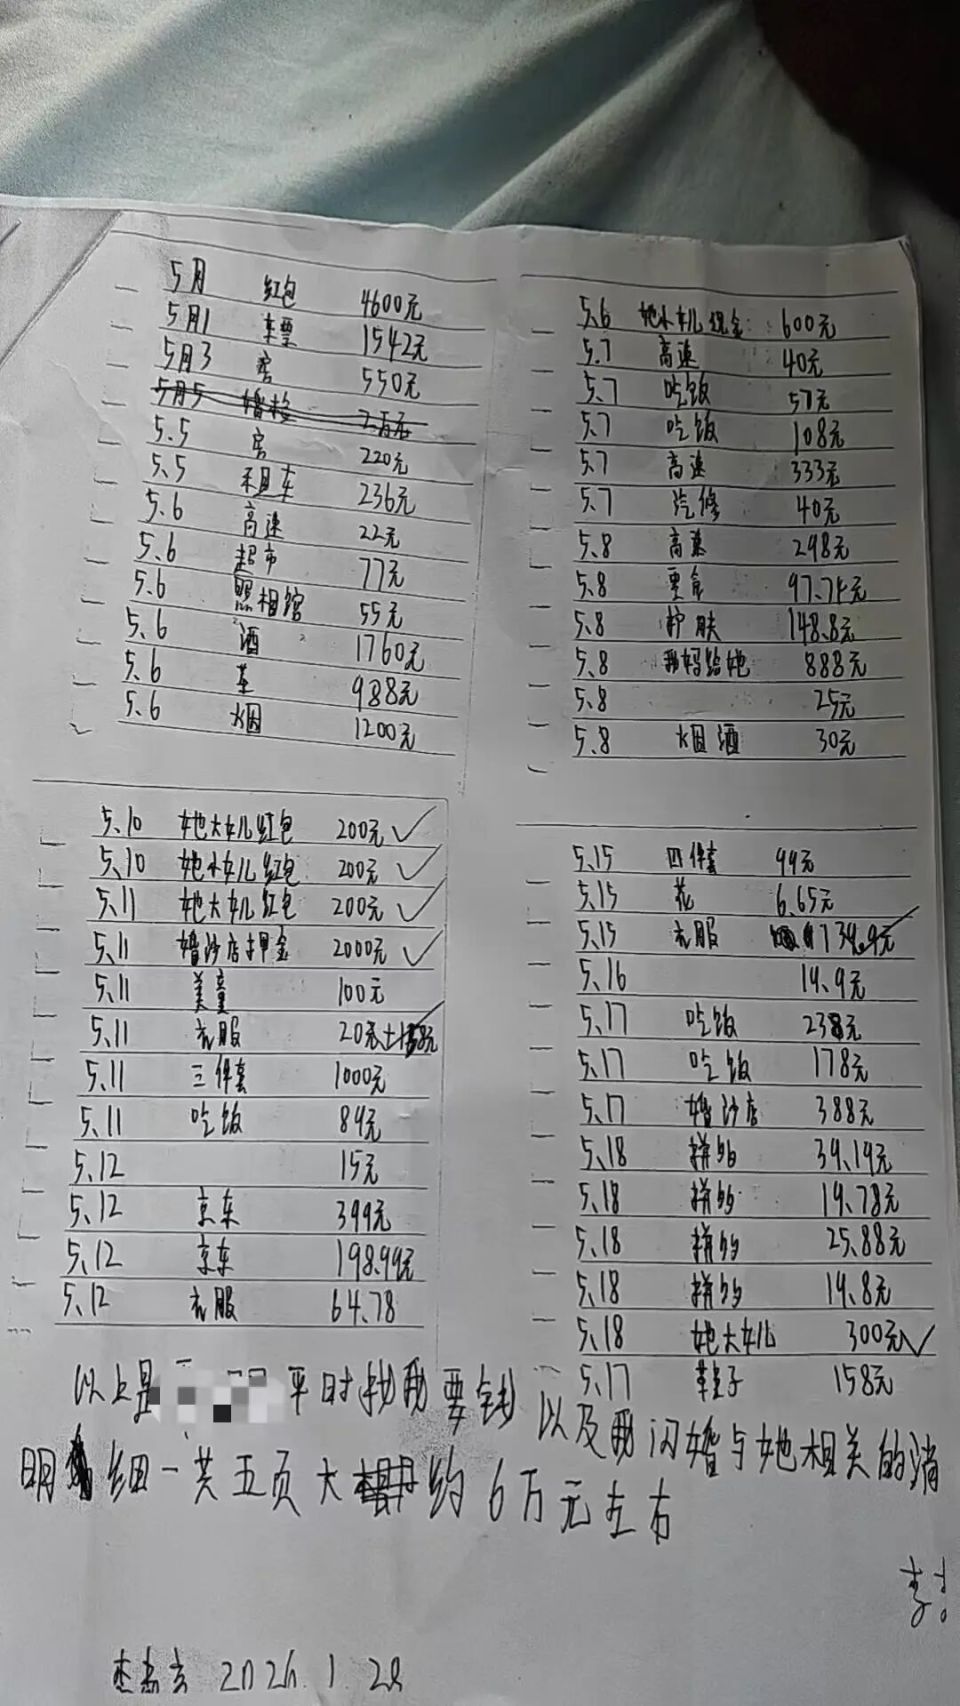 5月 红包 4600元
5月1 车票 1542元
5月3 房 550元
5月5 婚检 2万元
5.5 房 220元
5.5 租车 236元
5.6 高速 22元
5.6 超市 77元
5.6 照相馆 55元
5.6 酒 1760元
5.6 茶 988元
5.6 烟 1200元
5.6 她小女儿现金 600元
5.7 高速 40元
5.7 吃饭 57元
5.7 吃饭 108元
5.7 高速 333元
5.7 汽修 40元
5.8 高速 298元
5.8 零食 97.74元
5.8 护肤 148.8元
5.8 我妈给她 888元
5.8 25元
5.8 烟酒 30元
5.10 她大女儿红包 200元
5.10 她小女儿红包 200元
5.11 她大女儿红包 200元
5.11 婚沙店押金 2000元
5.11 美童 100元
5.11 衣服 20元
5.11 三件套 1000元
5.11 吃饭 89元
5.12 15元
5.12 京东 399元
5.12 京东 198.99元
5.12 衣服 64.78
5.15 四件套 99元
5.15 花 6.65元
5.15 衣服 134.9元
5.16 14.9元
5.17 吃饭 238元
5.17 吃饭 178元
5.17 婚沙店 388元
5.18 拼多 39.19元
5.18 拼多 19.78元
5.18 拼多 25.88元
5.18 拼多 14.8元
5.18 她大女儿 300元
5.17 鞋子 158元
以上是 平时找我要钱以及我闪婚与她相关的消
明细一共五页大约6万元左右
2026.1.28